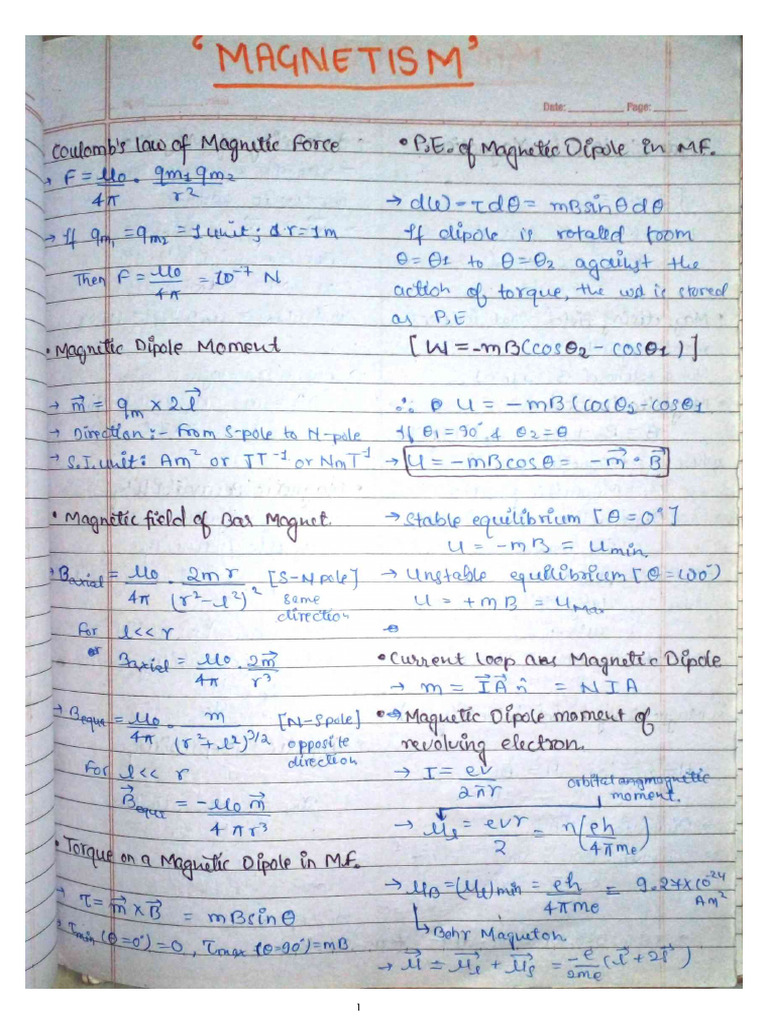 'MAGNETISM'
Date: ________ Page: ______
Coulomb's law of Magnetic Force
→ F = μ₀/4π · qm₁qm₂/r²
→ If qm₁ = qm₂ = 1 unit; & r = 1m
Then F = μ₀/4π = 10⁻⁷ N
• Magnetic Dipole Moment
→ m⃗ = qm × 2l⃗
→ Direction :- From S-pole to N-pole
→ S.I. unit: Am² or JT⁻¹ or NmT⁻¹
• Magnetic field of Bar Magnet.
• Baxial = μ₀/4π · 2mr/(r²-l²)² [S-N pole] same direction
For l<<r
or Baxial = μ₀/4π · 2m⃗/r³
→ Beque = μ₀/4π · m/(r²+l²)^3/2 [N-S pole] opposite direction
For l<< r
B⃗eque = -μ₀ m⃗/4πr³
• Torque on a Magnetic Dipole in M.F.
→ τ = m⃗ × B⃗ = mBsinθ
→ τmin (θ=0°) = 0, τmax (θ=90°) = mB
• P.E. of Magnetic Dipole in MF.
→ dW - τdθ = mBsinθdθ
If dipole is rotated from
θ = θ1 to θ = θ2 against the
action of torque, the wd is stored
as P.E
[W = -mB(cosθ2 - cosθ1)]
∴ U = -mB(cosθ2 - cosθ1
If θ1 = 90° & θ2 = θ
→ U = -mBcosθ = -m⃗ · B⃗
→ Stable equilibrium [θ = 0°]
U = -mB = Umin
→ Unstable equilibrium [θ = 180°)
U = +mB = UMax
• Current loop as Magnetic Dipole
→ m = I⃗A⃗ n̂ = NIA
• → Magnetic Dipole moment of
revolving electron.
→ I = ev/2πr
orbital magnetic moment.
→ μl = evr/2 = n(eh/4πme)
→ μB = (μl)min = eh/4πme = 9.27×10⁻²⁴ Am²
↳ Bohr Magneton.
→ μ⃗ = μ⃗l + μ⃗s = -e/2me (l⃗ + 2s⃗)
1